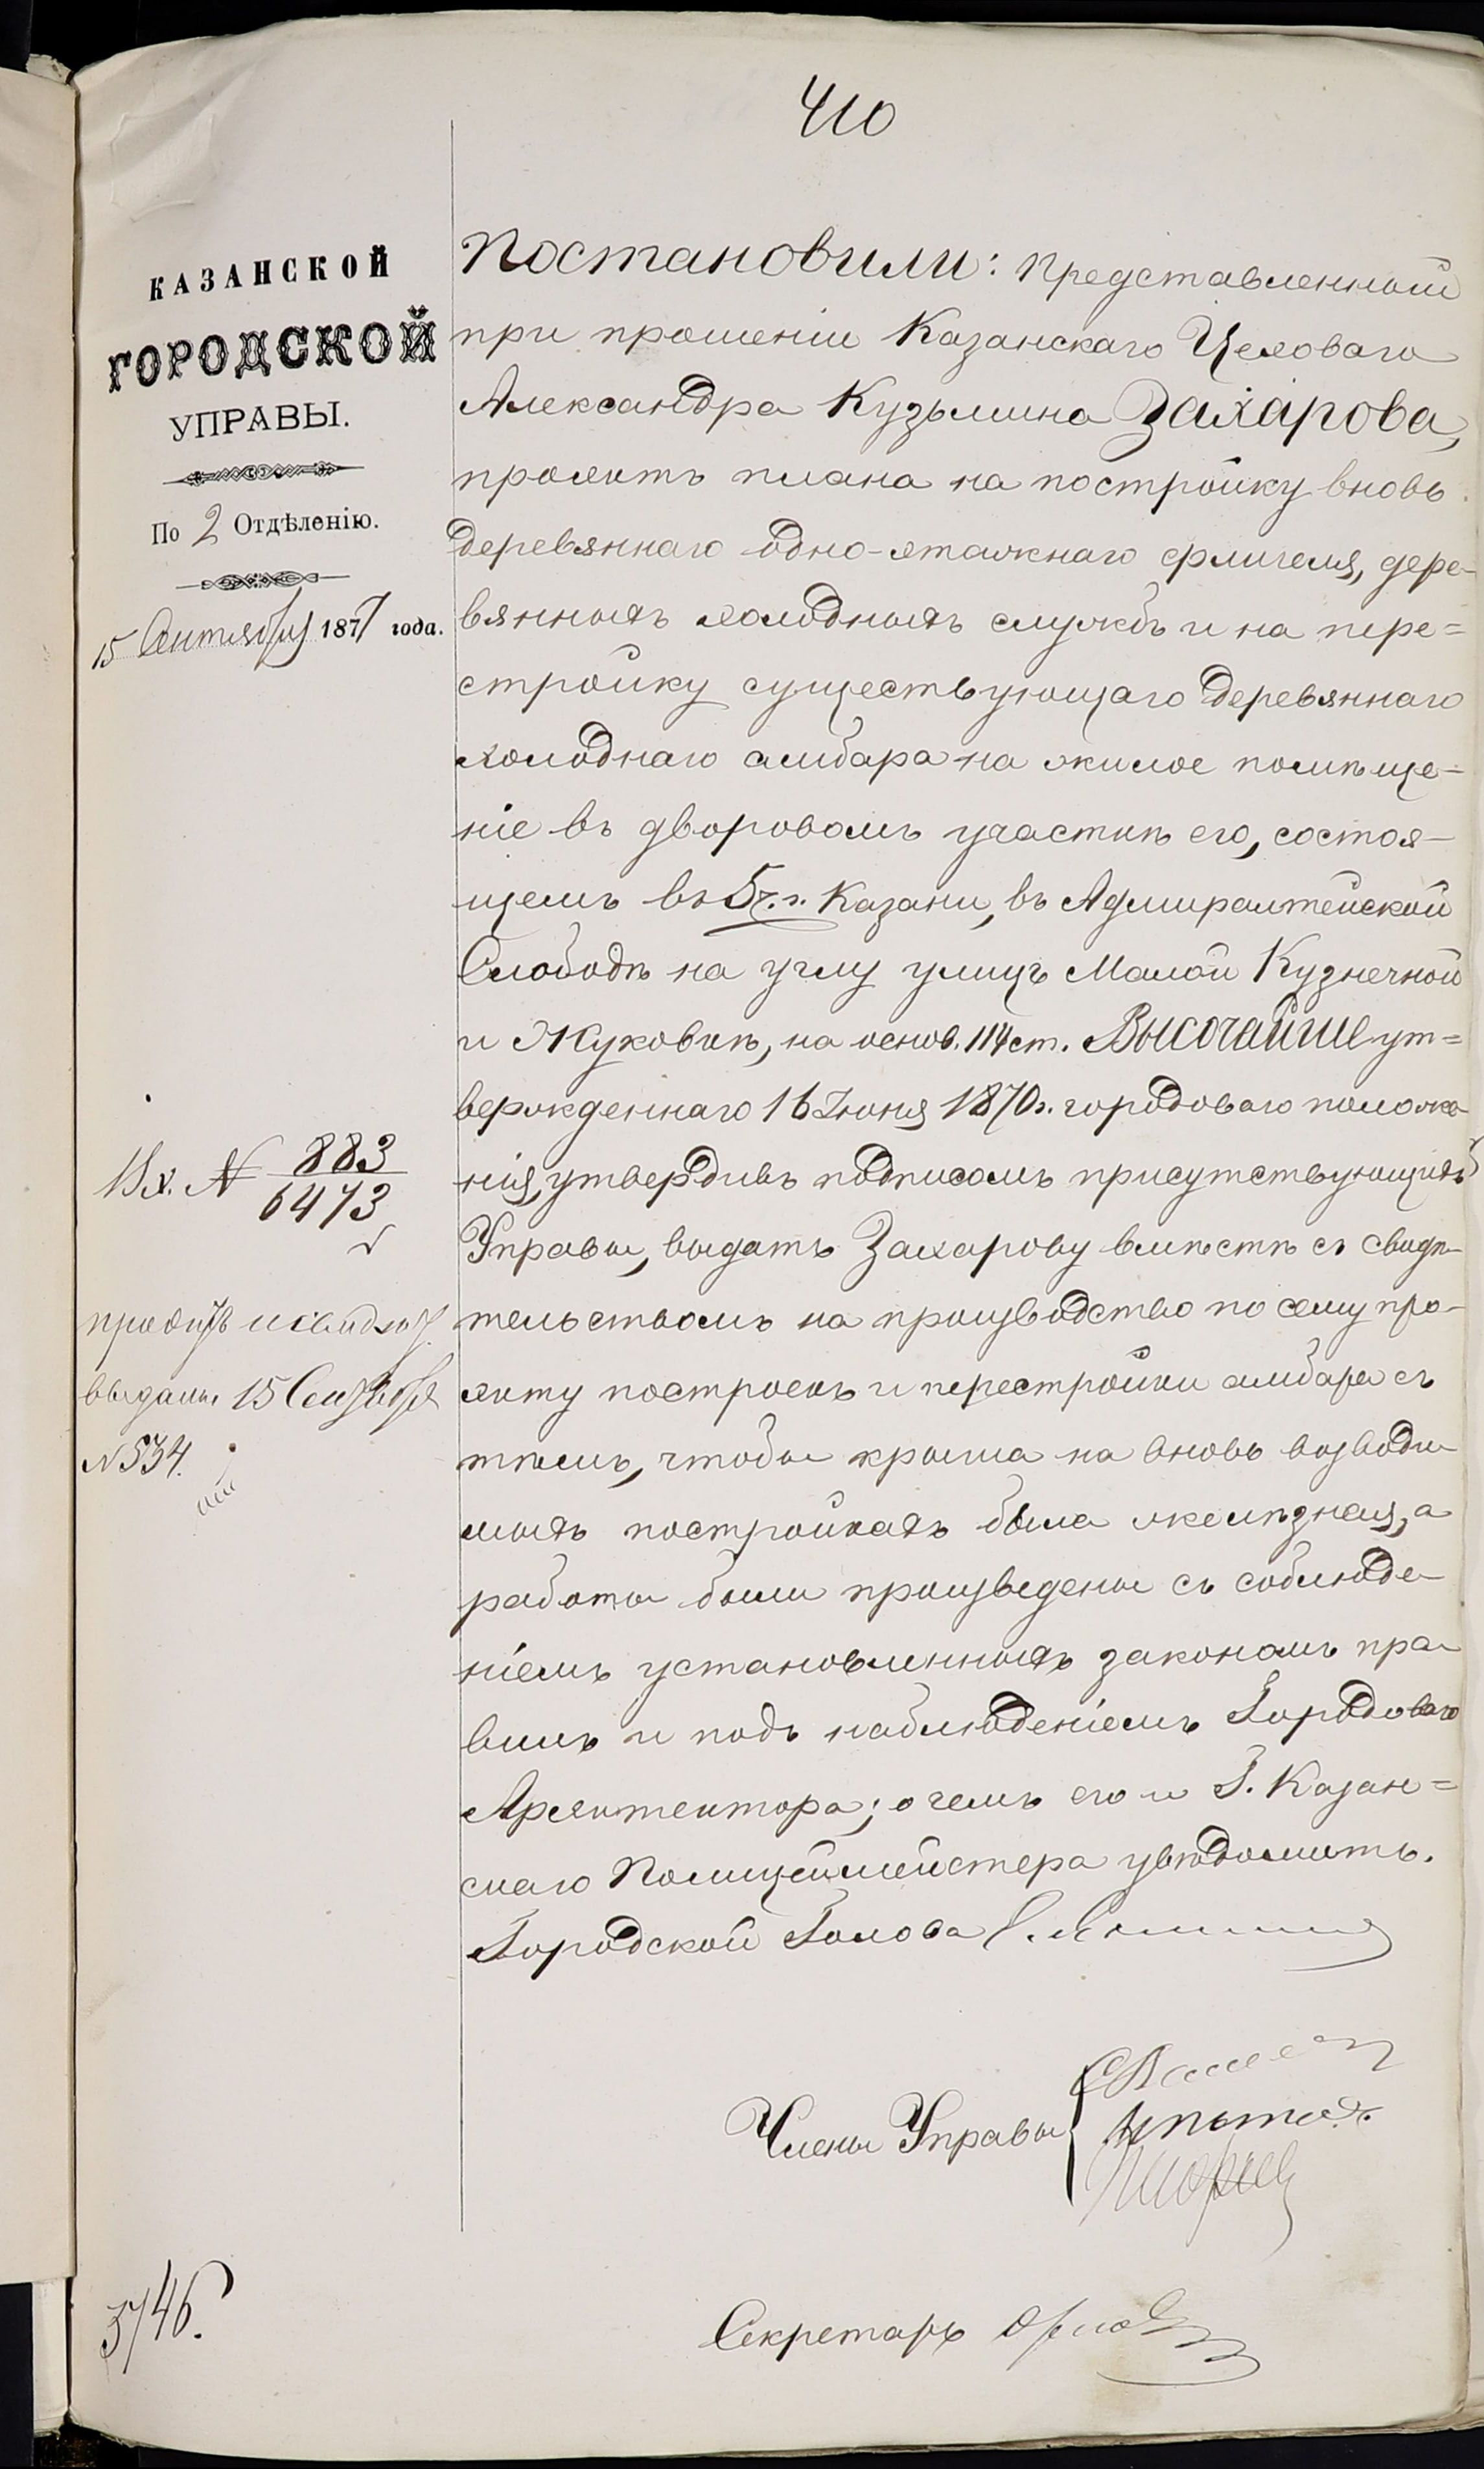 410
КАЗАНСКОЙ
ГОРОДСКОЙ
УПРАВЫ.
По 2 Отдѣленію.
15 Сентября 1877 года.
Вх. № 883
6473
выданы 15 Сентября
№ 534.
Постановили: представленный
при прошеніи Казанскаго Цеховаго
Александра Кузьмина Захарова,
проэктъ плана на постройку вновь
деревяннаго одно-этажнаго флигеля, дере-
вянныхъ холодныхъ службъ и на пере=
стройку существующаго деревяннаго
холоднаго амбара на жилое помѣще-
ніе въ дворовомъ участкѣ его, состоя-
щемъ въ 5 ч. г. Казани, въ Адмиралтейской
Слободѣ на углу улицъ Малой Кузнечной
и Жуковкѣ, на основ. 114 ст. Высочайше ут=
вержденнаго 16 Іюня 1870 г. городоваго положе-
нія, утвердивъ подписомъ присутствующихъ
Управы, выдать Захарову вмѣстѣ съ свидѣ-
тельствомъ на производство по сему про-
экту построекъ и перестройки амбара съ
тѣмъ, чтобы крыша на вновь возводи
мыхъ постройкахъ была желѣзная, а
работы были произведены съ соблюде-
ніемъ установленныхъ закономъ пра-
вилъ и подъ наблюденіемъ Городоваго
Архитектора; о чемъ его и Г. Казан=
скаго Полицеймейстера увѣдомить.
Городской Голова
Члены Управы
Секретарь Орлов
5746.